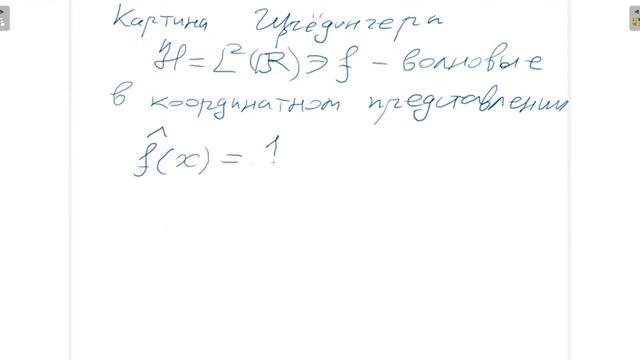 Картина Шрёдингера
ℋ = L²(ℝ) ∋ f – волновые
в координатном представлении
f̂(x) = 1